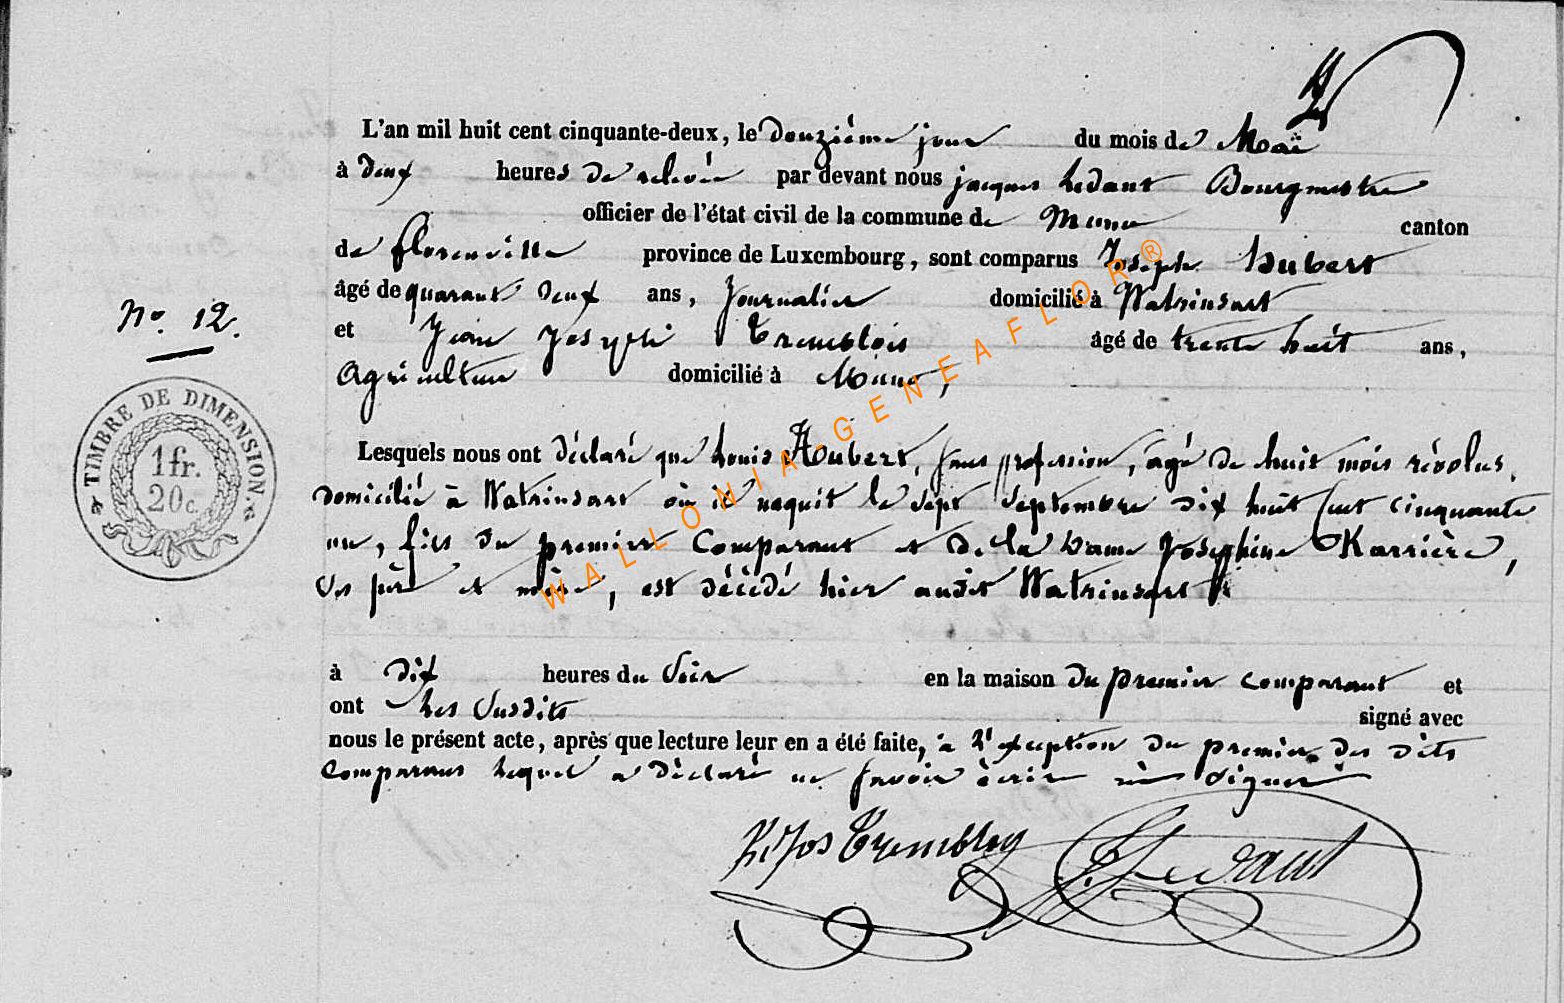 L'an mil huit cent cinquante-deux, le douzième jour du mois de Mai
à deux heures de relevée par devant nous jacques Ledant Bourgmestre
officier de l'état civil de la commune de Muno canton
de florenville province de Luxembourg, sont comparus Joseph Hubert
âgé de quarante deux ans, Journalier domicilié à Watrinsart
No. 12.
et Jean Joseph Tremblois âgé de trente huit ans,
Agriculteur domicilié à Muno,
TIMBRE DE DIMENSION.
1 fr.
20 c.
Lesquels nous ont déclaré que Louis Hubert, sans profession, âgé de huit mois révolus,
domicilié à Watrinsart où il naquit le sept septembre dix huit cent cinquante
un, fils du premier comparant et de la Dame Joséphine Karrière,
ses père et mère, est décédé hier audit Watrinsart
à dix heures du soir en la maison du premier comparant et
ont Les susdits signé avec
nous le présent acte, après que lecture leur en a été faite, à l'exception du premier des dits
comparans lequel a déclaré ne savoir écrire ni signer
Trembloy Ledant
WALLONIA-GENEAFLOR®